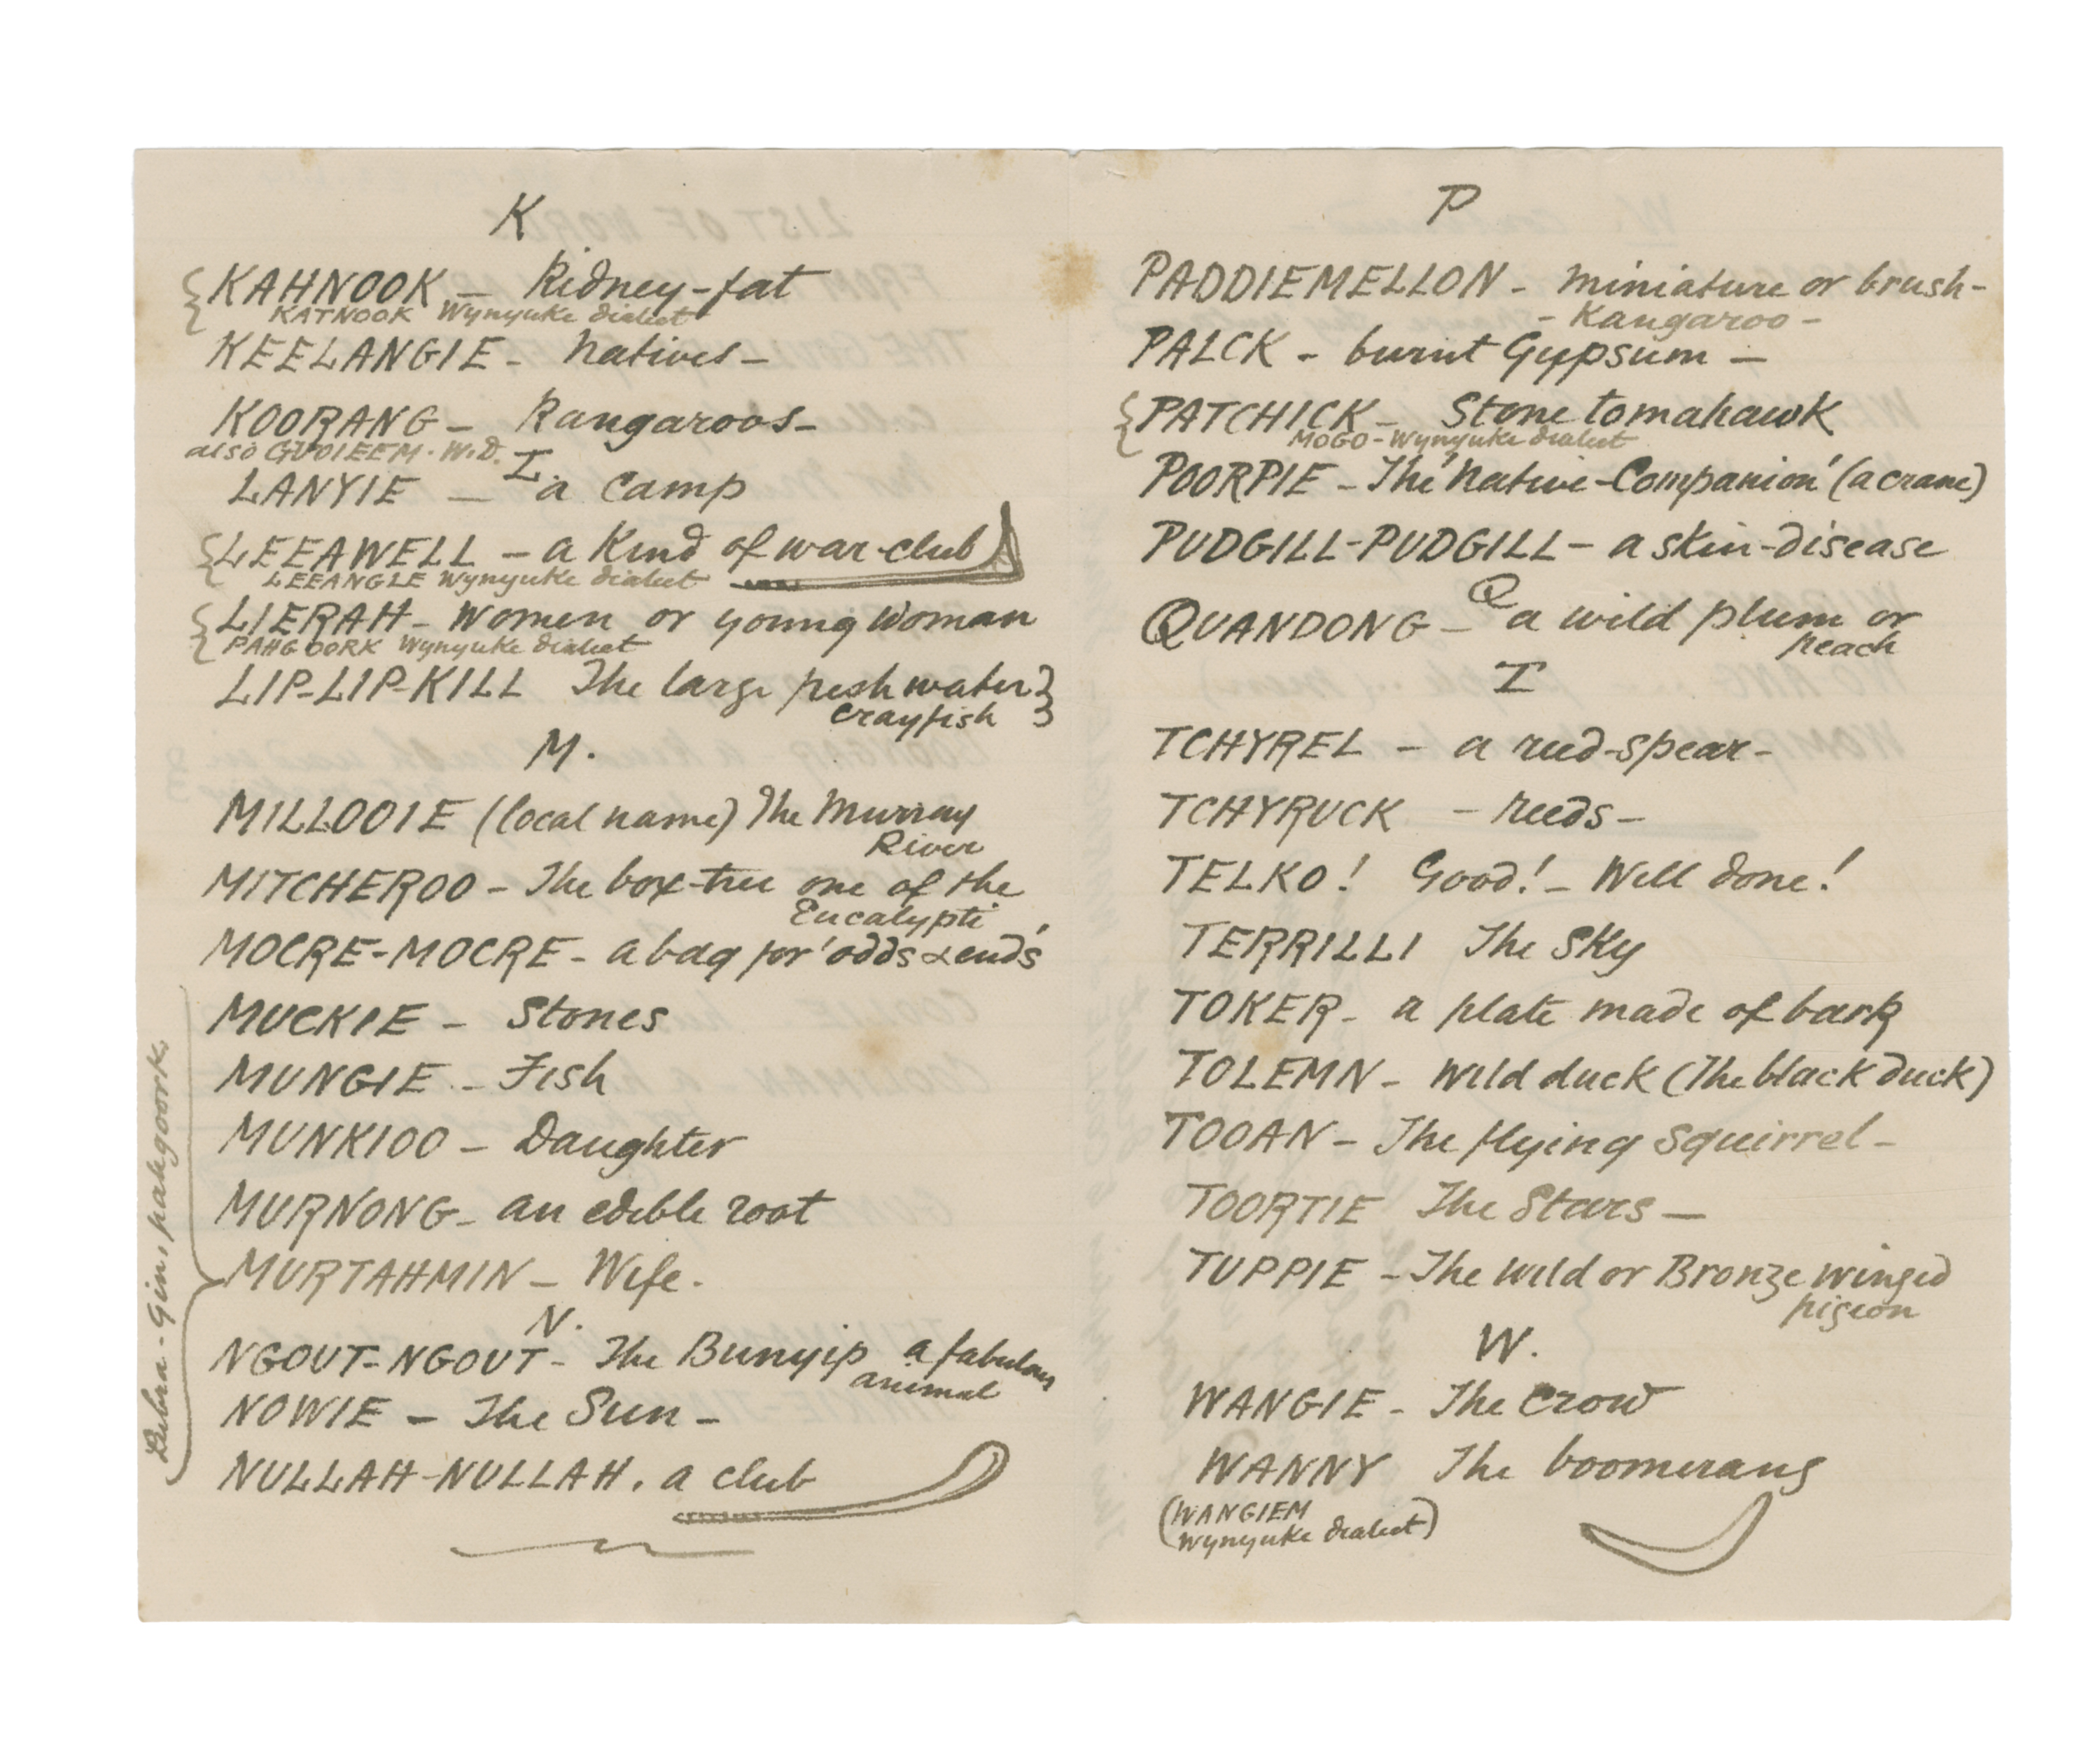 K
KAHNOOK - Kidney-fat
KATNOOK Wynyuke dialect
KEELANGIE - Natives -
KOORANG - Kangaroos -
also GUOIEEM. W.D.
L
LANYIE - a Camp
LEEAWELL - a Kind of war-club
LEEANGLE Wynyuke dialect
LIERAH - Women or young Woman
PAHGOORK Wynyuke dialect
LIP-LIP-KILL The large fresh water
crayfish
M.
MILLOOIE (local name) The Murray
River
MITCHEROO - The box-tree one of the
Eucalypti
MOCRE-MOCRE - a bag for 'odds & ends'
MUCKIE - Stones
MUNGIE - Fish
MUNKIOO - Daughter
MURNONG - an edible root
MURTAHMIN - Wife.
Lubra - Gin, pahgoork.
N.
NGOUT-NGOUT - The Bunyip a fabulous
animal
NOWIE - The Sun -
NULLAH-NULLAH. a club
P
PADDIEMELLON - Miniature or brush-
- Kangaroo -
PALCK - burnt Gypsum -
PATCHICK - Stone tomahawk
MOGO - Wynyuke dialect
POORPIE - The 'Native-Companion' (a crane)
PUDGILL-PUDGILL - a skin-disease
Q
QUANDONG - a wild plum or
peach
T
TCHYREL - a reed-spear -
TCHYRUCK - reeds -
TELKO! Good! - Well done!
TERRILLI The Sky
TOKER - a plate made of bark
TOLEMN - Wild duck (The black duck)
TOOAN - The flying squirrel -
TOORTIE The Stars -
TUPPIE - The wild or Bronze winged
pigeon
W.
WANGIE - The Crow
WANNY The boomerang
(WANGIEM
Wynyuke dialect)